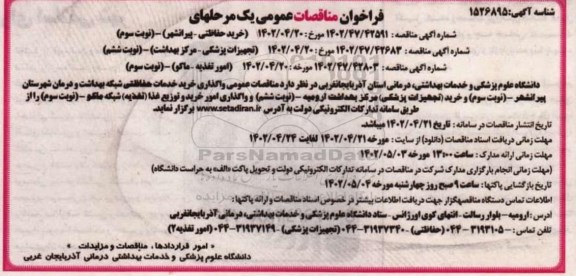 شناسه آگهی: ۱۵۲۶۸۹۵
فراخوان مناقصات عمومی یک مرحله‌ای
شماره آگهی مناقصه : ۱۴۰۲/۴۷/۴۲۵۹۱ مورخ: ۱۴۰۲/۰۴/۲۰ (خرید حفاظتی - پیرانشهر) - (نوبت سوم)
شماره آگهی مناقصه : ۱۴۰۲/۴۷/۴۲۶۸۳ مورخ : ۱۴۰۲/۰۴/۲۰ (تجهیزات پزشکی - مرکز بهداشت) - (نوبت ششم)
شماره آگهی مناقصه : ۱۴۰۲/۴۷/۴۲۸۰۳ مورخه : ۱۴۰۲/۰۴/۲۰ (امور تغذیه - ماکو) - (نوبت سوم)
دانشگاه علوم پزشکی و خدمات بهداشتی، درمانی استان آذربایجانغربی در نظر دارد مناقصات عمومی واگذاری خرید خدمات حفاظتی شبکه بهداشت و درمان شهرستان
پیرانشهر - (نوبت سوم) و خرید (تجهیزات پزشکی) مرکز بهداشت ارومیه - (نوبت ششم) و واگذاری امور خرید و توزیع غذا (تغذیه) شبکه ماکو - (نوبت سوم) را از
طریق سامانه تدارکات الکترونیکی دولت به آدرس www.setadiran.ir برگزار نماید.
تاریخ انتشار مناقصات در سامانه : تاریخ ۱۴۰۲/۰۴/۲۱ میباشد.
مهلت زمانی دریافت اسناد مناقصات (دانلود) از سایت : مورخه ۱۴۰۲/۰۴/۲۱ لغایت ۱۴۰۲/۰۴/۲۴
مهلت زمانی ارائه مدارک : ساعت ۱۳:۰۰ مورخه ۱۴۰۲/۰۵/۰۳
(مهلت زمانی انجام بارگزاری مدارک شرکت در مناقصات در سامانه تدارکات الکترونیکی دولت و تحویل پاکت «الف» به حراست دانشگاه)
تاریخ بازگشایی پاکتها : ساعت ۹ صبح روز چهارشنبه مورخه ۱۴۰۲/۰۵/۰۴
اطلاعات تماس دستگاه مناقصه‌گزار جهت دریافت اطلاعات بیشتر در خصوص اسناد مناقصات و ارائه پاکتها:
آدرس : ارومیه - بلوار رسالت - انتهای کوی اورژانس - ستاد دانشگاه علوم پزشکی و خدمات بهداشتی، درمانی آذربایجانغربی
تلفن تماس : ۳۱۹۳۱۰۵-۰۴۴ (حفاظتی) - ۳۱۹۳۷۳۴۰-۰۴۴ (تجهیزات پزشکی) - ۳۱۹۳۷۱۴۹-۰۴۴ (امور تغذیه۲)
« امور قراردادها، مناقصات و مزایدات »
دانشگاه علوم پزشکی و خدمات بهداشتی درمانی آذربایجان غربی
ParsNamadData